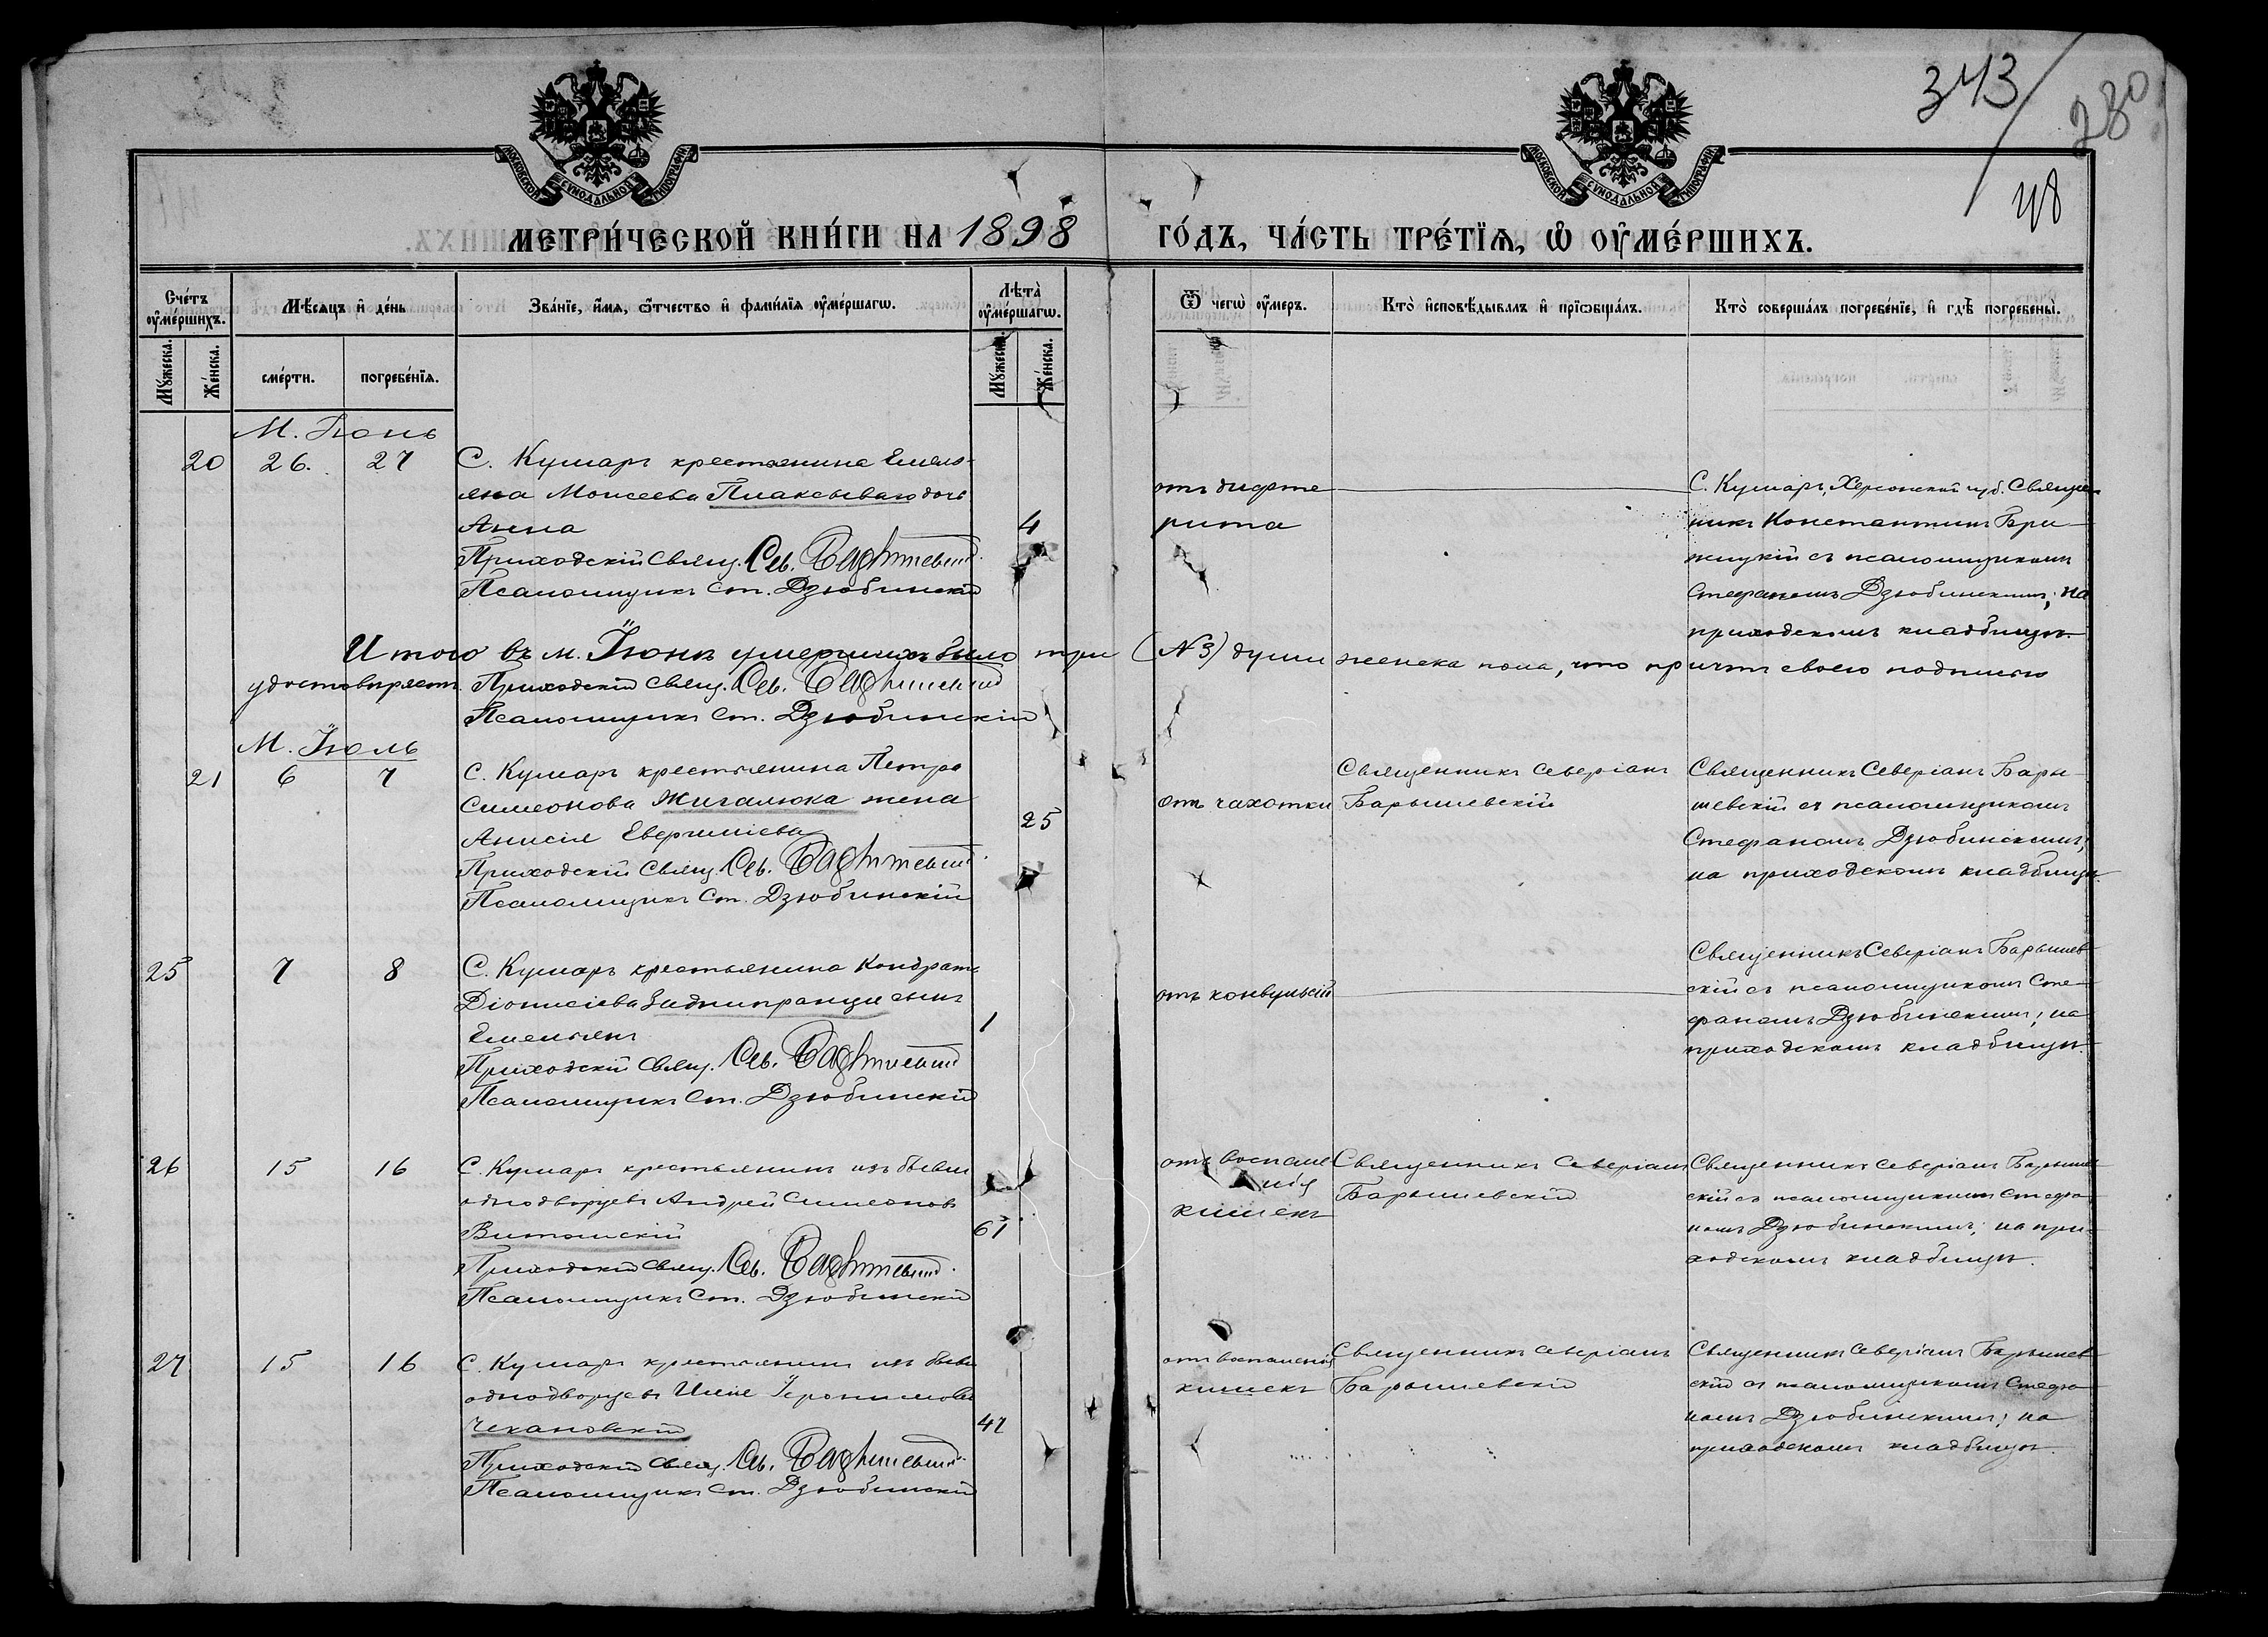 343
280
48
МОСКОВСКОЙ СѴНОДАЛЬНОЙ ТИПОГРАФІИ.
МОСКОВСКОЙ СѴНОДАЛЬНОЙ ТИПОГРАФІИ.
МЕТРИ́ЧЕСКОЙ КНИ́ГИ НА 1898 ГО́ДЪ, ЧА́СТЬ ТРЕ́ТЇѦ, Ѡ҆ ОУ҆МЕ́РШИХЪ.
Сче́тъ оу҆ме́ршихъ.
Мѣ́сѧцъ и҆ де́нь
Зва́нїе, и҆́мѧ, ѻ҆́тчество и҆ фами́лїѧ оу҆ме́ршагѡ.
Лѣ̑та̀ оу҆ме́ршагѡ.
Ѿ чегѡ̀ оу҆́меръ.
Кто̀ и҆сповѣ́дывалъ и҆ прїѡбща́лъ.
Кто̀ соверша́лъ погребе́нїе, и҆ гдѣ̀ погребены̀.
Мꙋ́жеска.
Же́нска.
сме́рти.
погребе́нїѧ.
Мꙋ́жеска.
Же́нска.
М. Іюнь
20 26. 27 С. Кумаръ крестьянина Емель-
яна Моисеева дочь
Анна 4
Приходскій Свящ. Сев. Барышевскій.
Псаломщикъ Ст. Дзюбинскій
отъ дифте
рита
С. Кумаръ, Херсонской губ. Священ
никъ Константинъ
съ псаломщикомъ
Стефаномъ Дзюбинскимъ; на
приходскомъ кладбищѣ.
Итого въ м. Іюнѣ умершихъ было три (№ 3) души женска пола, что причтъ своею подписью
удостовѣряетъ. Приходскій Свящ. Сев. Барышевскій
Псаломщикъ Ст. Дзюбинскій
М. Іюль
21 6 7 С. Кумаръ крестьянина Петра
Симеонова Жигалюка жена
Анисія 25
Приходскій Свящ. Сев. Барышевскій.
Псаломщикъ Ст. Дзюбинскій
отъ чахотки
Священникъ Северіанъ
Барышевскій
Священникъ Северіанъ Бары-
шевскій съ псаломщикомъ
Стефаномъ Дзюбинскимъ;
на приходскомъ кладбищѣ.
25 7 8 С. Кумаръ крестьянина Кондрата
Діонисіева сынъ
Емельянъ 1
Приходскій Свящ. Сев. Барышевскій
Псаломщикъ Ст. Дзюбинскій
отъ конвульсій
Священникъ Северіанъ Барышев
скій съ псаломщикомъ Сте-
фаномъ Дзюбинскимъ; на
приходскомъ кладбищѣ.
26 15 16 С. Кумаръ крестьянинъ изъ бывш
однодворцевъ Андрей Симеоновъ
61
Приходскій Свящ. Сев. Барышевскій.
Псаломщикъ Ст. Дзюбинскій
отъ воспале
нія
кишекъ
Священникъ Северіанъ
Барышевскій
Священникъ Северіанъ Барышев
скій съ псаломщикомъ Стефа-
номъ Дзюбинскимъ; на при-
ходскомъ кладбищѣ.
27 15 16 С. Кумаръ крестьянинъ изъ бывш
однодворцевъ Илія Іеронимовъ
Чекановскій
Приходскій Свящ. Сев. Барышевскій.
Псаломщикъ Ст. Дзюбинскій
отъ воспаленія
кишекъ
Священникъ Северіанъ
Барышевскій
Священникъ Северіанъ Барышев
скій съ псаломщикомъ Стефа-
номъ Дзюбинскимъ; на
приходскомъ кладбищѣ.